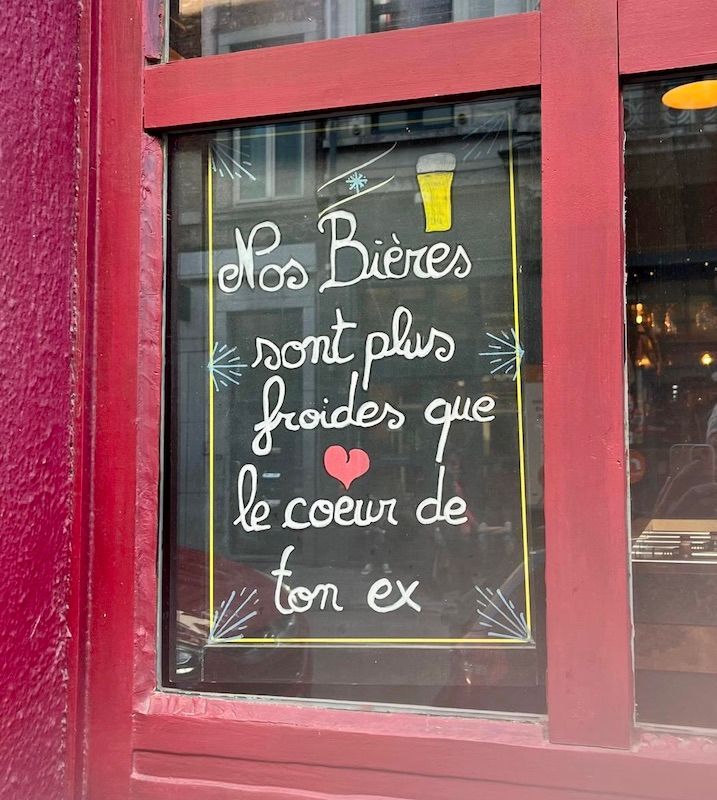 Nos Bières
sont plus
froides que
le coeur de
ton ex